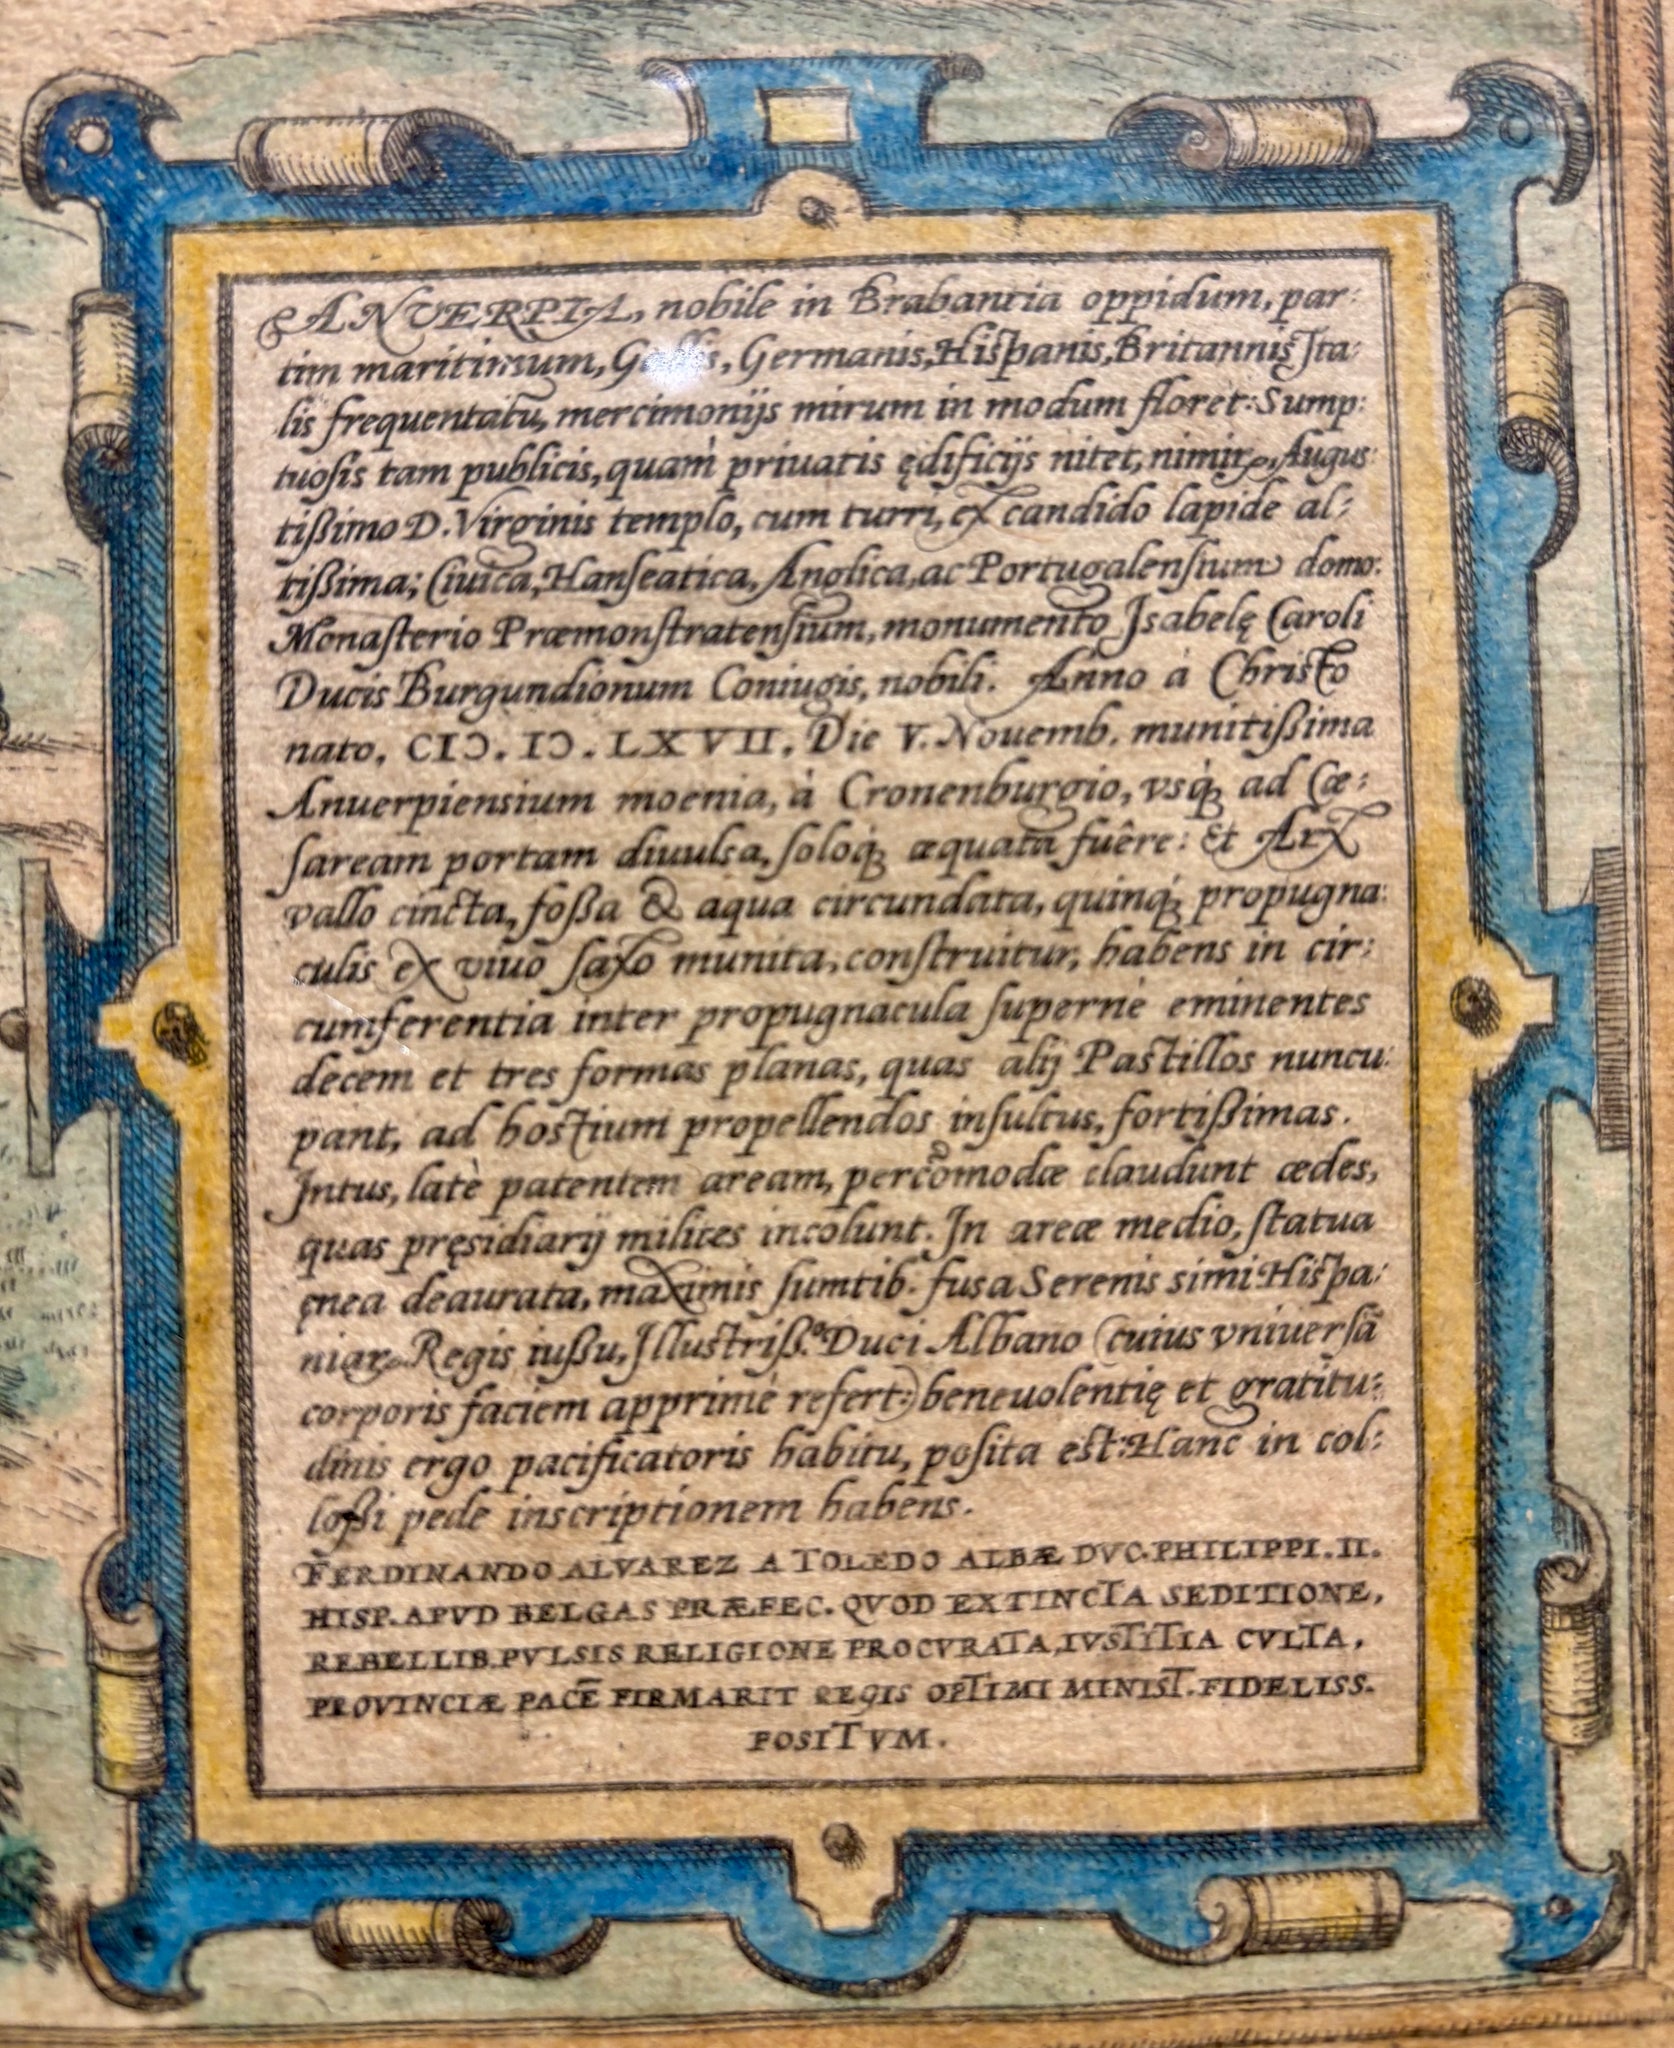 ANVERPIA, nobile in Brabantia oppidum, par:
tim maritimum, Gallis, Germanis, Hispanis, Britannis, Ita:
lis frequentatū, mercimonijs mirum in modum floret: Sump:
tuosis tam publicis, quam priuatis ędificijs nitet, nimirꝫ, Augus:
tißimo D. Virginis templo, cum turri, ex candido lapide al:
tißima; Ciuica, Hanseatica, Anglica, ac Portugalensium domo:
Monasterio Præmonstratensium, monumento Isabelę Caroli
Ducis Burgundionum Coniugis, nobili. Anno à Christo
nato, CIƆ. IƆ. LXVII. Die V. Nouemb. munitißima
Anuerpiensium moenia, à Cronenburgio, vsq́; ad Cæ:
saream portam diuulsa, soloq́; æquata fuêre: et Arx
vallo cincta, foßa & aqua circundata, quinq́; propugna:
culis ex viuo saxo munita, construitur, habens in cir:
cumferentia inter propugnacula supernè eminentes
decem et tres formas planas, quas alij Pastillos nuncu:
pant, ad hostium propellendos insultus, fortißimas.
Intus, latè patentem aream, percōmodæ claudunt ædes,
quas pręsidiarij milites incolunt. In areæ medio, statua
ęnea deaurata, maximis sumtib. fusa Serenissimi Hispa:
niarꝫ Regis iußu, Illustriß.º Duci Albano (cuius vniuersā
corporis faciem apprimè refert:) beneuolentię et gratitu:
dinis ergo pacificatoris habitu, posita est: Hanc in col:
loßi pede inscriptionem habens.
FERDINANDO ALVAREZ A TOLEDO ALBÆ DVC. PHILIPPI. II.
HISP. APVD BELGAS PRÆFEC. QVOD EXTINCTA SEDITIONE,
REBELLIB. PVLSIS RELIGIONE PROCVRATA, IVSTITIA CVLTA,
PROVINCIÆ PACĒ FIRMARIT REGIS OPTIMI MINIST. FIDELISS.
POSITVM.